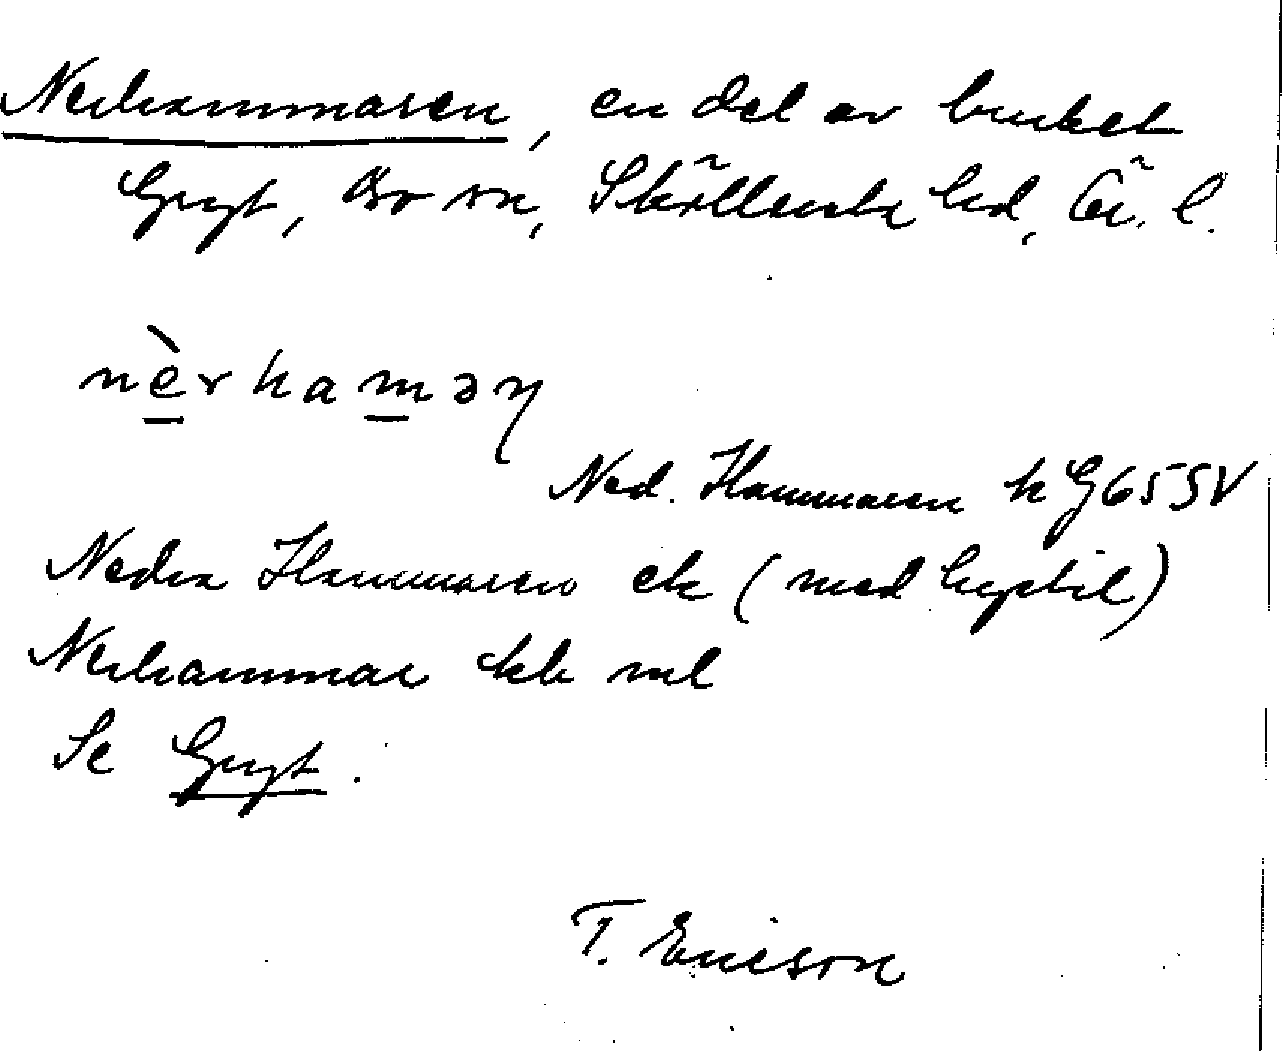 Nerhammaren, en del av bruket
Gryt, Bro sn, Skällersta hd, Ö. l.
nèrhaməṇ
Ned. Hammaren k G65SV
Nedra Hammaren ek (med Gryt)
Nerhammar kb ml
Se Gryt.
T. Ericson